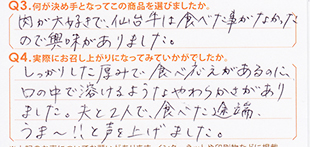 Q3.何が決め手となってこの商品を選びましたか。
肉が大好きで、仙台牛は食べた事がなかった
ので興味がありました。
Q4.実際にお召し上がりになってみていかがでしたか。
しっかりした厚みで、食べ応えがあるのに、
口の中で溶けるようなやわらかさがあり
ました。夫と2人で、食べた途端、
うま〜!!と声を上げました。